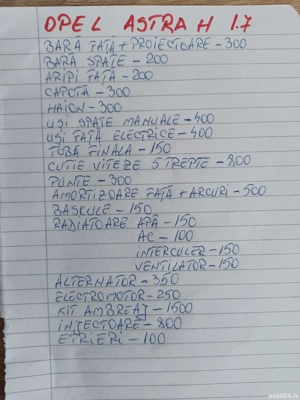 OPEL ASTRA H 1.7
BARĂ FAȚĂ + PROIECTOARE - 300
BARĂ SPATE - 200
ARIPI FAȚĂ - 200
CAPOTĂ - 300
HAION - 300
UȘI SPATE MANUALE - 400
UȘI FAȚĂ ELECTRICE - 400
TOBĂ FINALĂ - 150
CUTIE VITEZE 5 TREPTE - 800
PUNTE - 300
AMORTIZOARE FAȚĂ + ARCURI - 500
BASCULE - 150
RADIATOARE APĂ - 150
AC - 100
INTERCULER - 150
VENTILATOR - 150
ALTERNATOR - 350
ELECTROMOTOR - 250
KIT AMBREAJ - 1500
INJECTOARE - 800
ETRIERI - 100